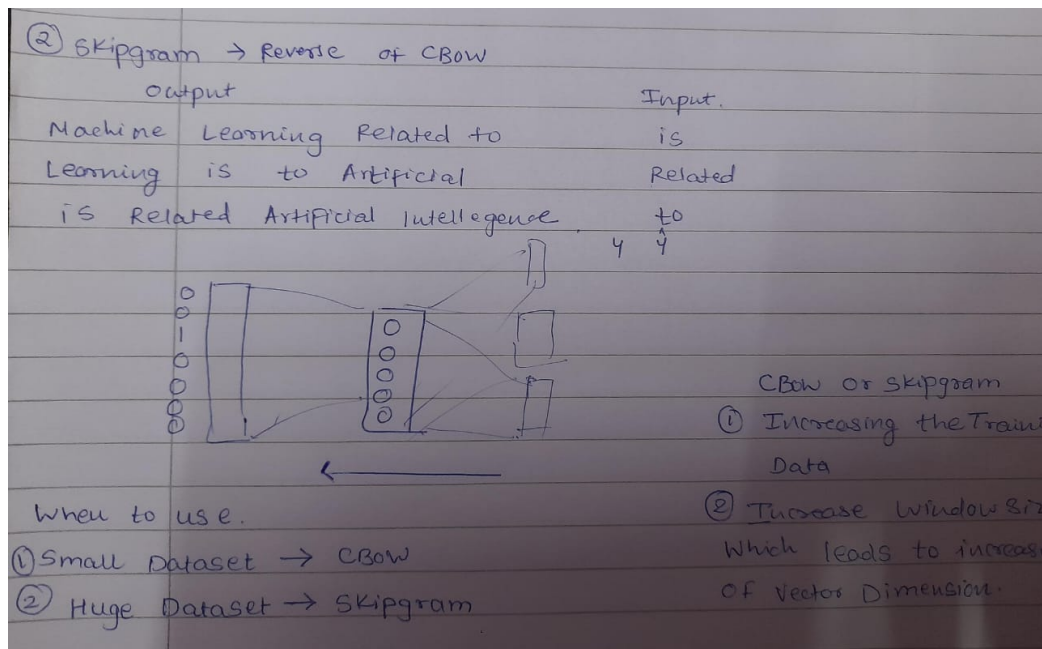 ② Skipgram → Reverse of CBOW
Output Input.
Machine Learning Related to is
Learning is to Artificial Related
is Related Artificial Intellegence. to
y ŷ
0
0
1
0
0
0
0
CBOW or Skipgram
① Increasing the Train
Data
② Increase Window Siz
Which leads to increas
Of Vector Dimension.
When to use.
① Small Dataset → CBOW
② Huge Dataset → Skipgram